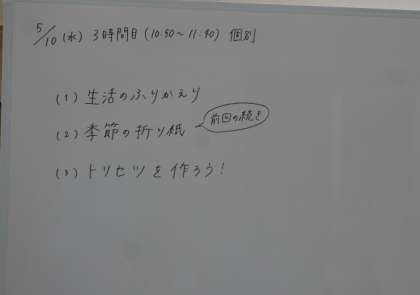 5/10(水) 3時間目(10:50~11:40) 個別
(1) 生活のふりかえり
(2) 季節の折り紙 前回の続き
(3) トリセツを作ろう!